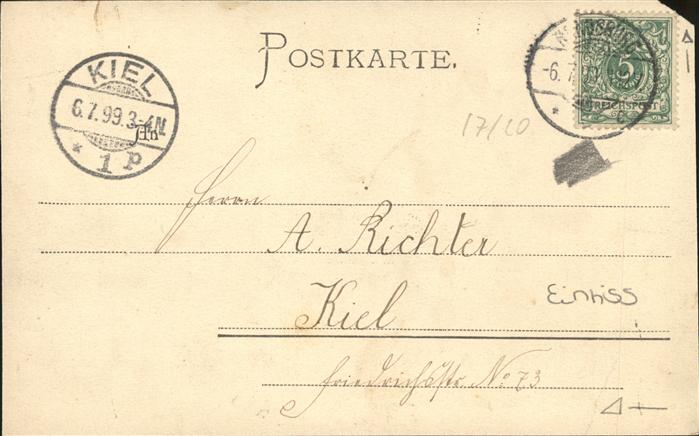 POSTKARTE.
KIEL
6.7.99.3-4N
* 1 P
-6.7.99
5
REICHSPOST
17/20
Herrn
A. Richter
Kiel
Einriss
Friedrichsstr. No 73